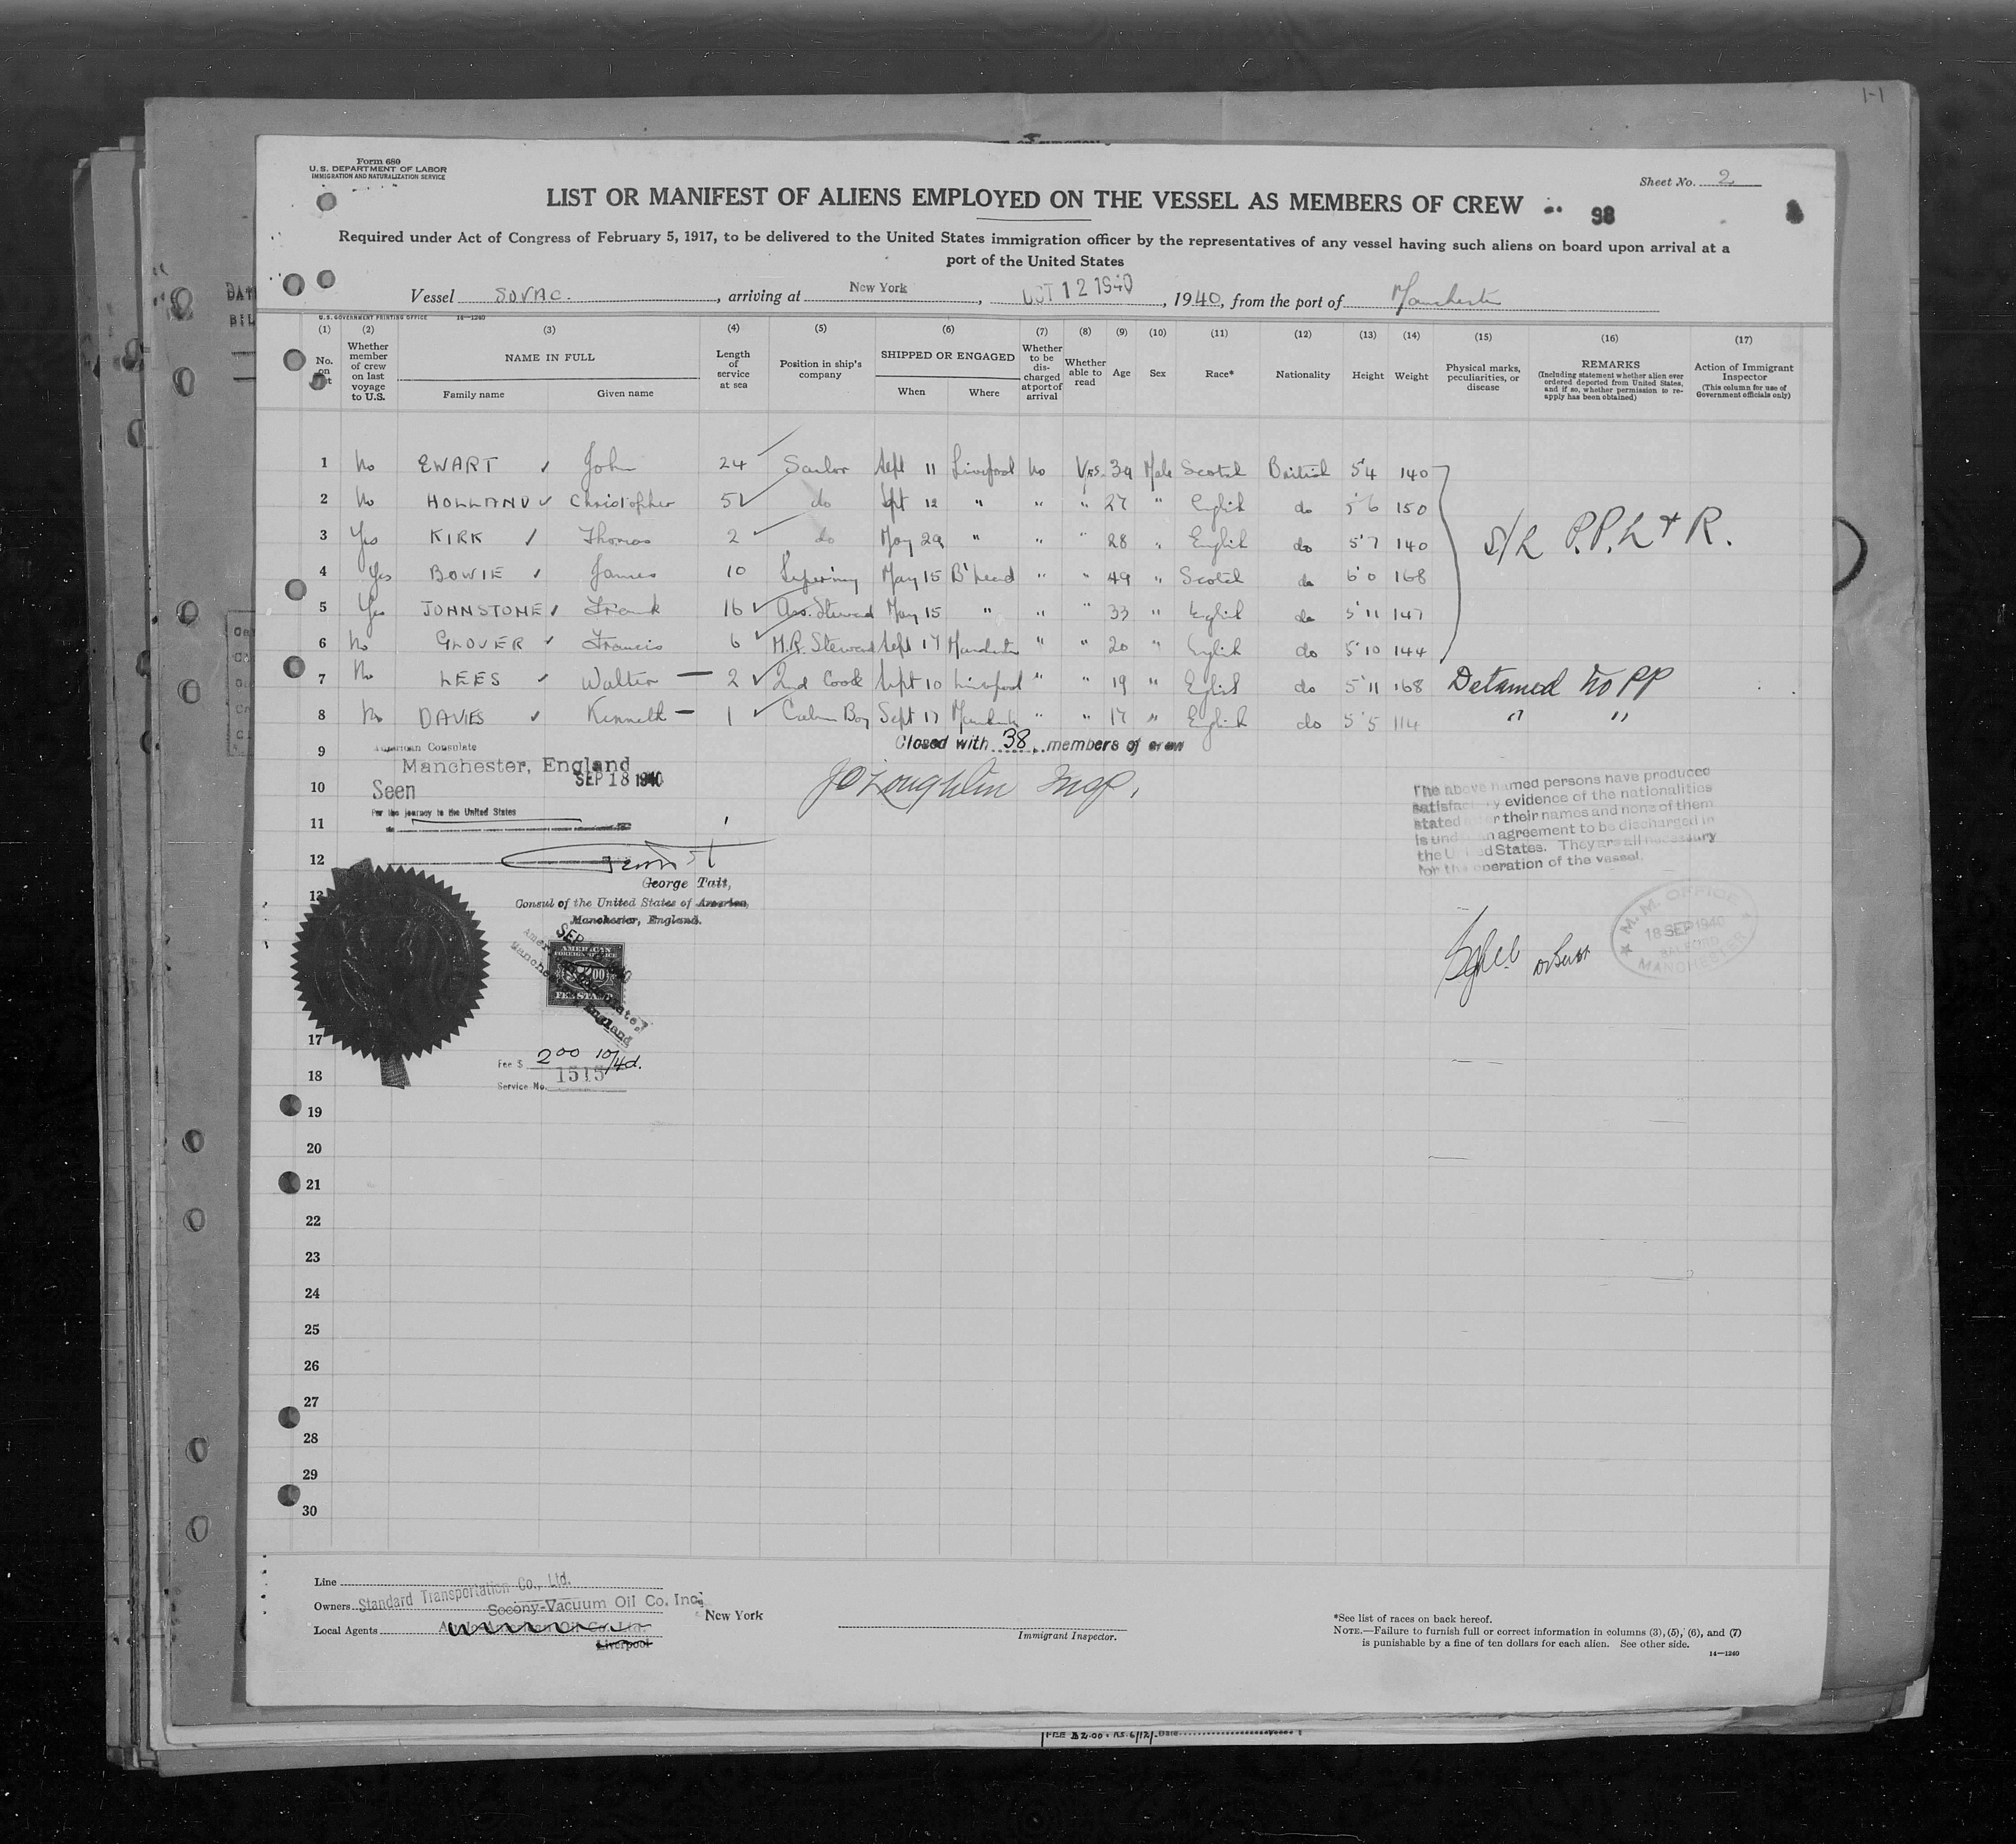 1-1
Form 680
U.S. DEPARTMENT OF LABOR
IMMIGRATION AND NATURALIZATION SERVICE
Sheet No. 2
LIST OR MANIFEST OF ALIENS EMPLOYED ON THE VESSEL AS MEMBERS OF CREW
98
Required under Act of Congress of February 5, 1917, to be delivered to the United States immigration officer by the representatives of any vessel having such aliens on board upon arrival at a
port of the United States
Vessel SOVAC., arriving at New York, OCT 12 1940, 1940, from the port of Manchester
U.S. GOVERNMENT PRINTING OFFICE 14—1240
(1) (2) (3) (4) (5) (6) (7) (8) (9) (10) (11) (12) (13) (14) (15) (16) (17)
No. on
Whether member of crew on last voyage to U.S.
NAME IN FULL
Family name Given name
Length of service at sea
Position in ship's company
SHIPPED OR ENGAGED
When Where
Whether to be discharged at port of arrival
Whether able to read
Age
Sex
Race*
Nationality
Height
Weight
Physical marks, peculiarities, or disease
REMARKS
(Including statement whether alien ever ordered deported from United States, and if so, whether permission to re-apply has been obtained)
Action of Immigrant Inspector
(This column for use of Government officials only)
1 No EWART John 24 Sailor Sept 11 Liverpool No Yes 39 Male Scotch British 5'4 140
2 No HOLLAND Christopher 5 do Sept 12 " " " 27 " English do 5'6 150
3 Yes KIRK Thomas 2 do May 29 " " " 28 " English do 5'7 140
S/L P.P. L + R.
4 Yes BOWIE James 10 May 15 B'head " " 49 " Scotch do 6'0 168
5 Yes JOHNSTONE Frank 16 Ass. Steward May 15 " " " 33 " English do 5'11 147
6 No GLOVER Francis 6 M.R. Steward Sept 17 Manchester " " 20 " English do 5'10 144
7 No LEES Walter — 2 2nd Cook Sept 10 Liverpool " " 19 " English do 5'11 168 Detained No PP
8 No DAVIES Kenneth — 1 Cabin Boy Sept 17 Manchester " " 17 " English do 5'5 114 " "
9
Closed with 38 members of crew
American Consulate
Manchester, England
SEP 18 1940
10
Seen
For the journey to the United States
J O'Loughlin Insp.
The above named persons have produced
satisfactory evidence of the nationalities
stated after their names and none of them
is under an agreement to be discharged in
the United States. They are all necessary
for the operation of the vessel.
11
12
George Tait,
13
Consul of the United States of America,
Manchester, England.
M. M. OFFICE
18 SEP 1940
SALFORD
MANCHESTER
SEP
American Consulate,
Manchester, England
AMERICAN
FOREIGN SERVICE
$2.00
FEE STAMP
17
Fee $ 2.00 10/4d.
18
Service No. 1515
19
20
21
22
23
24
25
26
27
28
29
30
Line
Owners Standard Transportation Co., Ltd.
Socony-Vacuum Oil Co. Inc. New York
Local Agents
Liverpool
Immigrant Inspector.
*See list of races on back hereof.
NOTE.—Failure to furnish full or correct information in columns (3), (5), (6), and (7)
is punishable by a fine of ten dollars for each alien. See other side.
14—1240